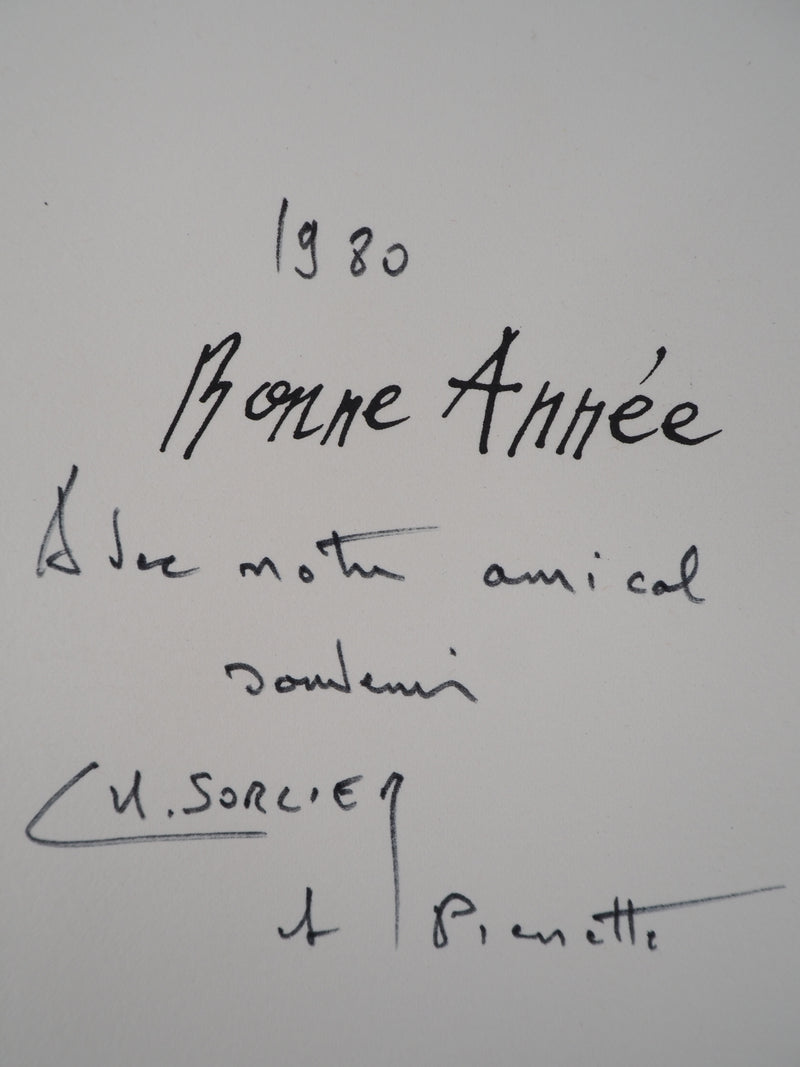 1980
Bonne Année
Avec notre amical
souvenir
CH. SORCIER
et Pierrette